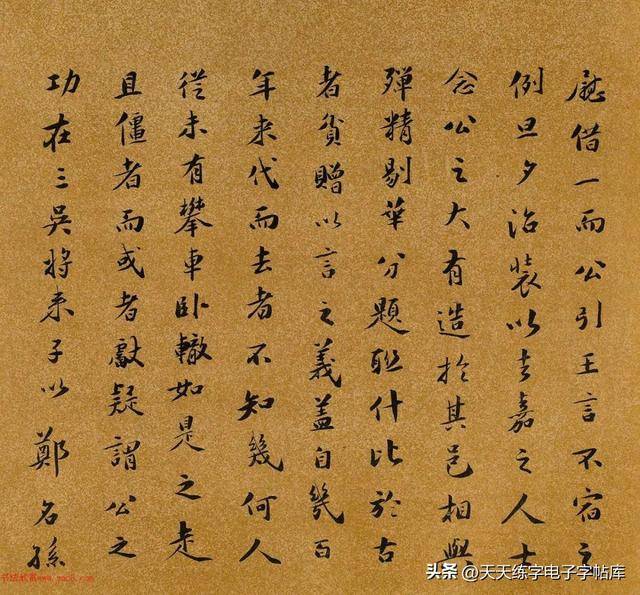 慰借一而公引王言不宿之
例旦夕治装以去嘉之人士
念公之大有造於其邑相與
殫精剔華分题聯什比於古
者貧贈以言之義盖自甓百
年来代而去者不知幾何人
從未有攀車卧轍如是之走
且僵者而或者獻疑謂公之
功在三吴将来子以鄭名孫
书法欣赏www.yac8.com
头条 @天天练字电子字帖库